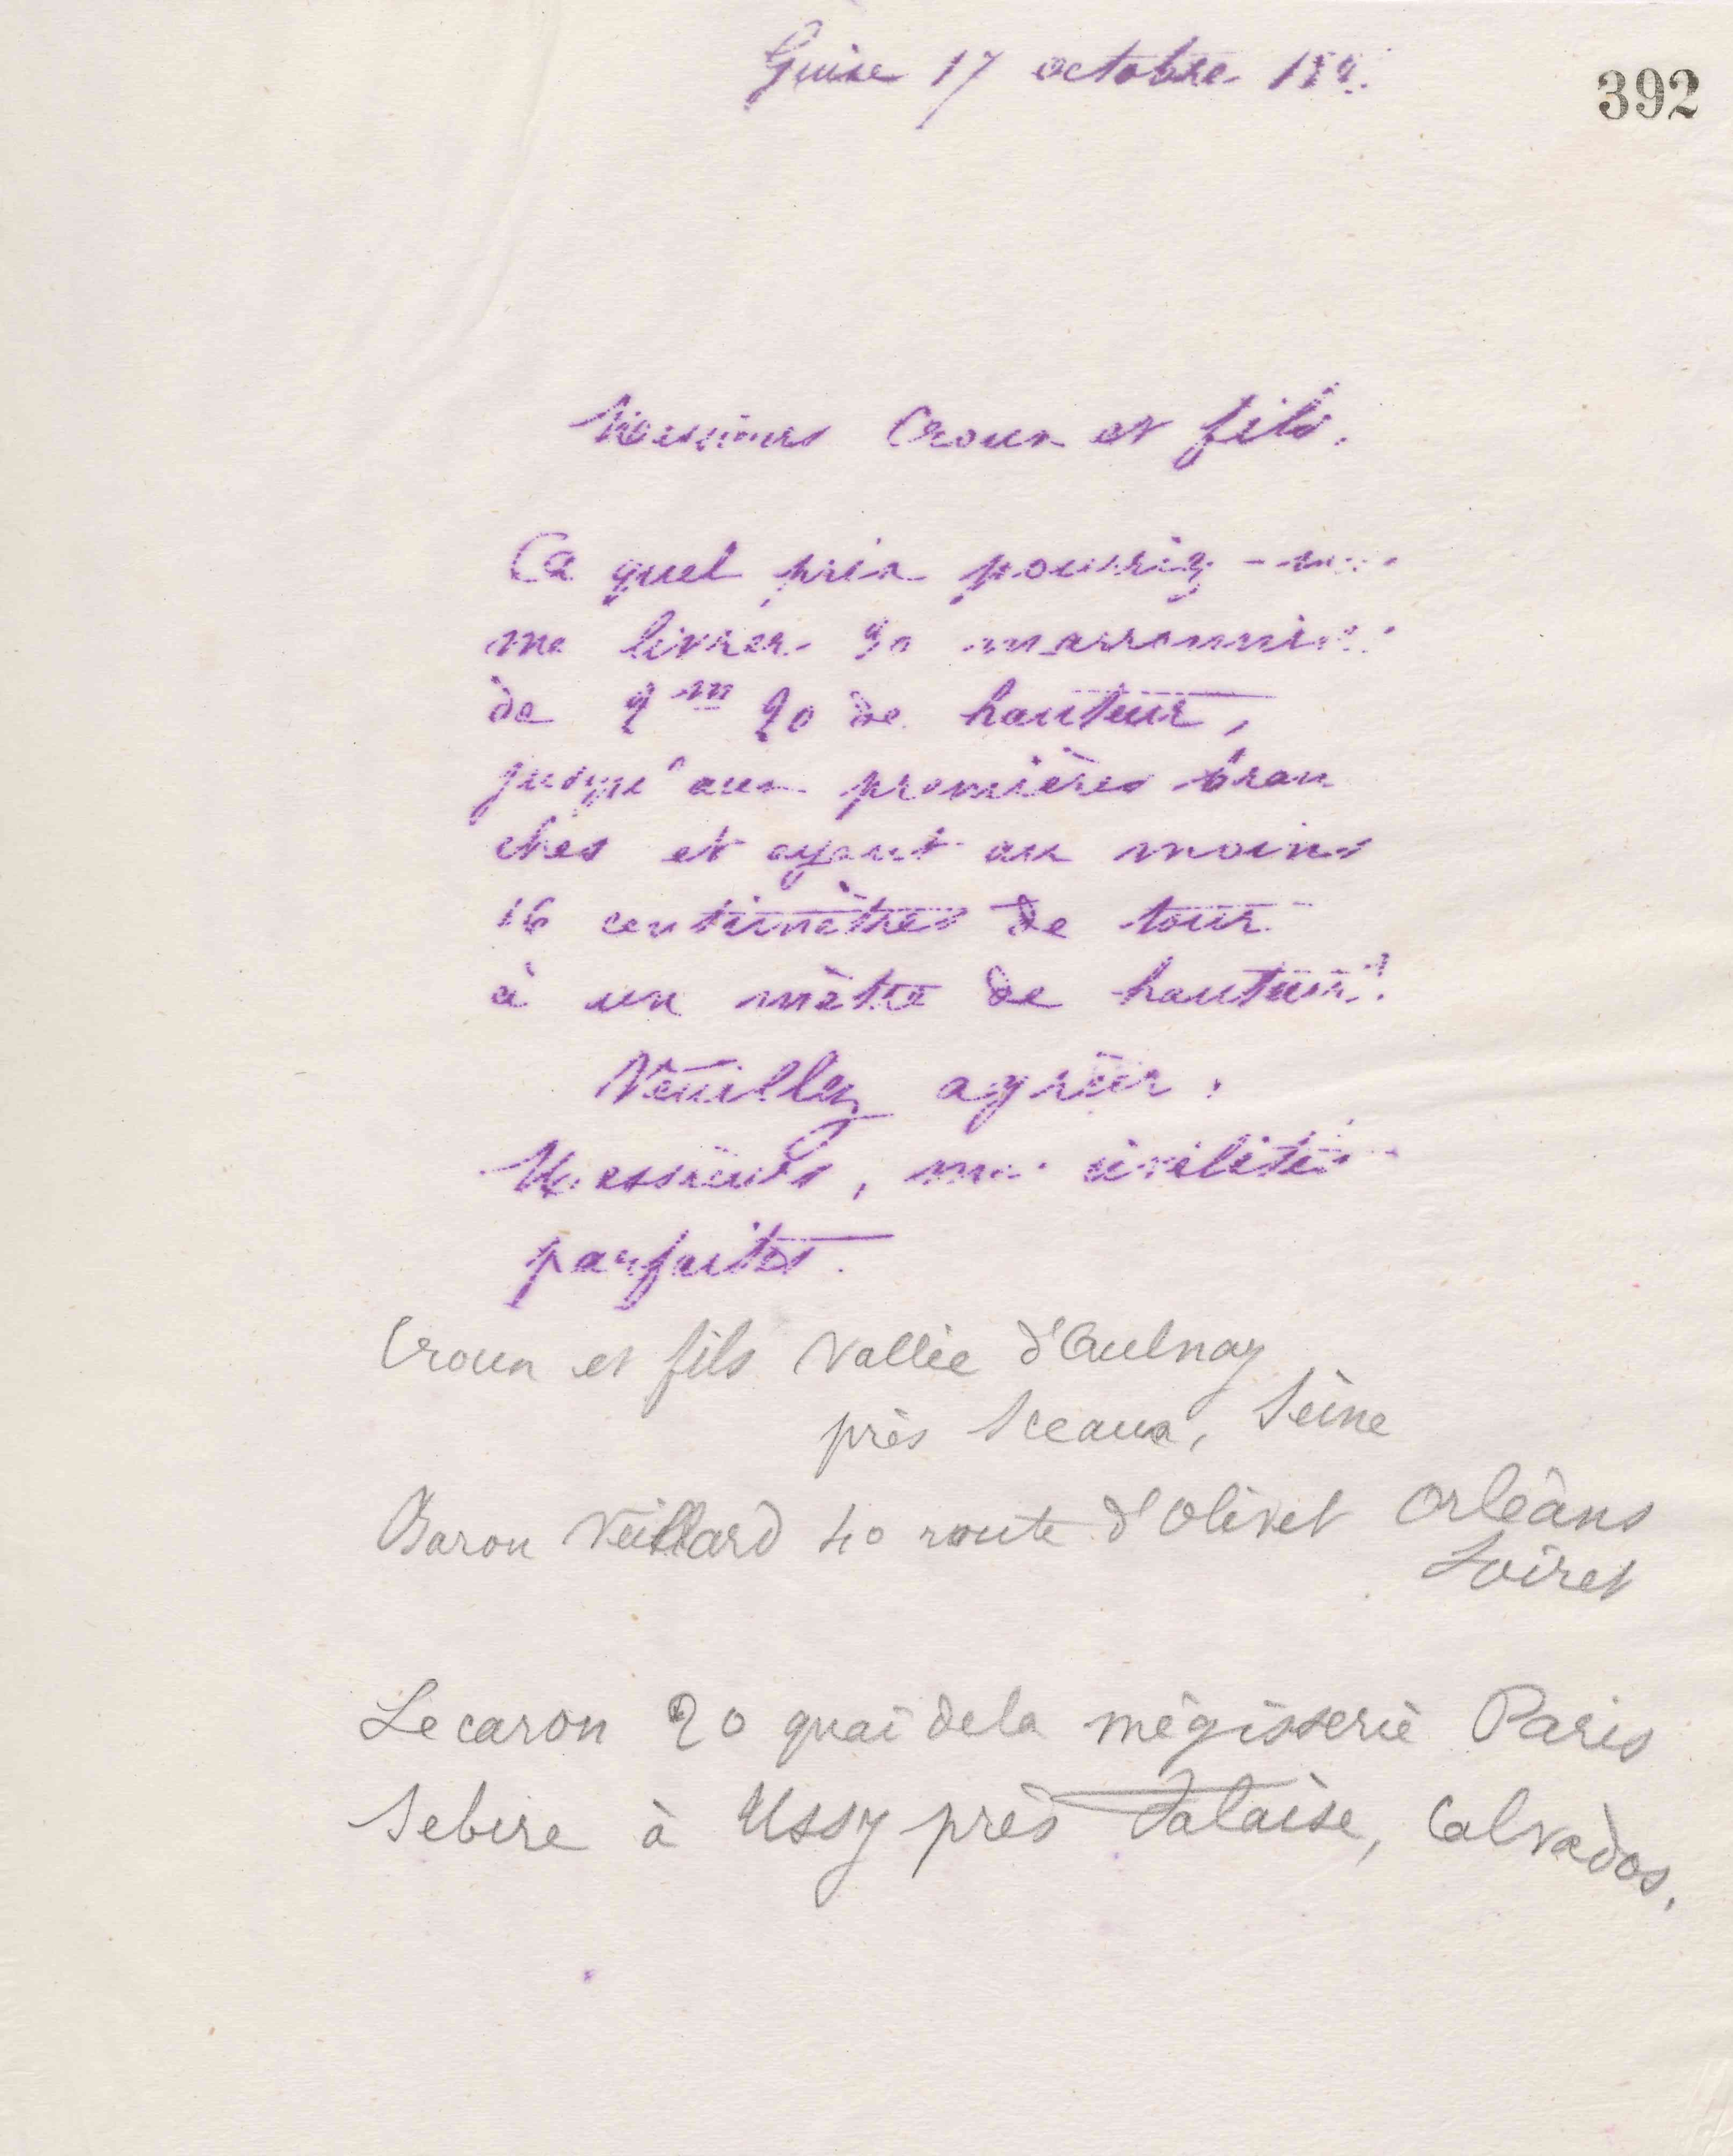 Guise 17 octobre
392
Messieurs Croux et fils.
A quel prix pourriez-vous
me livrer 90 marronniers
de 2m 20 de hauteur,
jusqu'aux premières bran
ches et ayant au moins
16 centimètres de tour
à un mètre de hauteur?
Veuillez agréer,
Messieurs, mes civilités
parfaites.
Croux et fils Vallée d'Aulnay
près Sceaux, Seine
Baron Veillard 40 route d'Olivet Orléans
Loiret
Lecaron 20 quai de la mégisserie Paris
Sebire à Ussy près Falaise, Calvados.